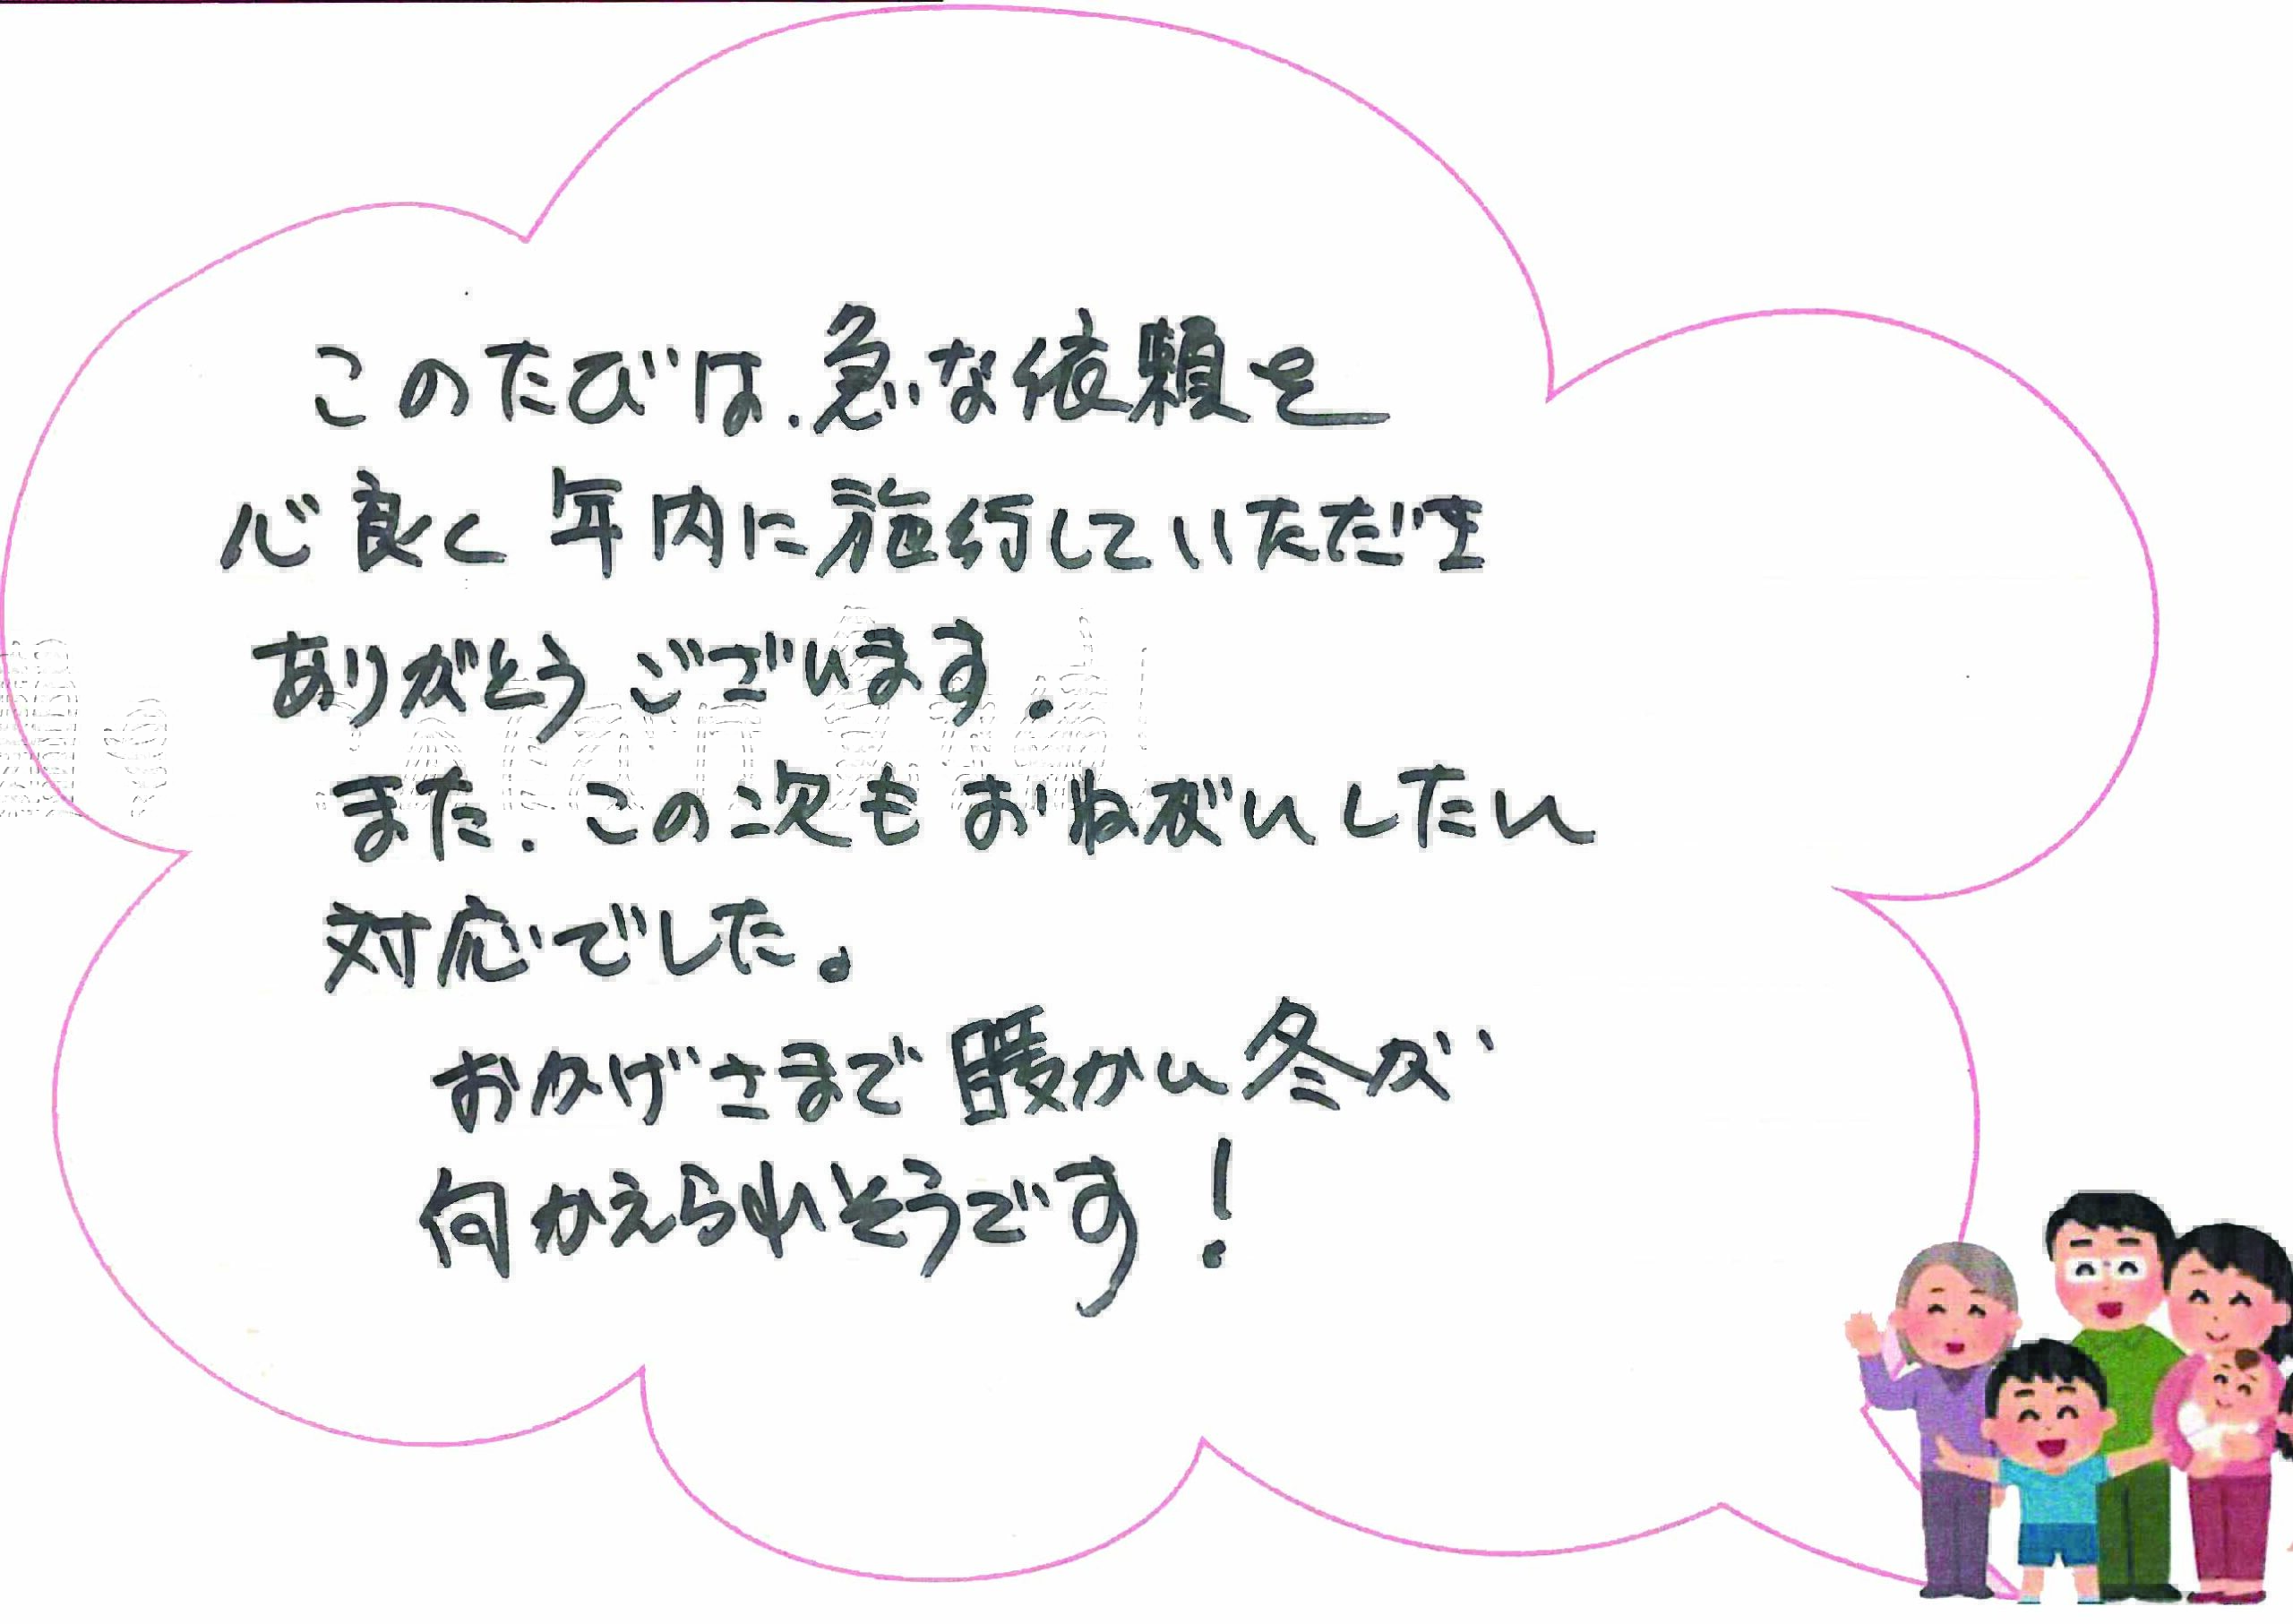 このたびは、急な依頼を
心良く年内に施行していただき
ありがとうございます。
また、この次もおねがいしたい
対応でした。
おかげさまで暖かい冬が
向かえられそうです!